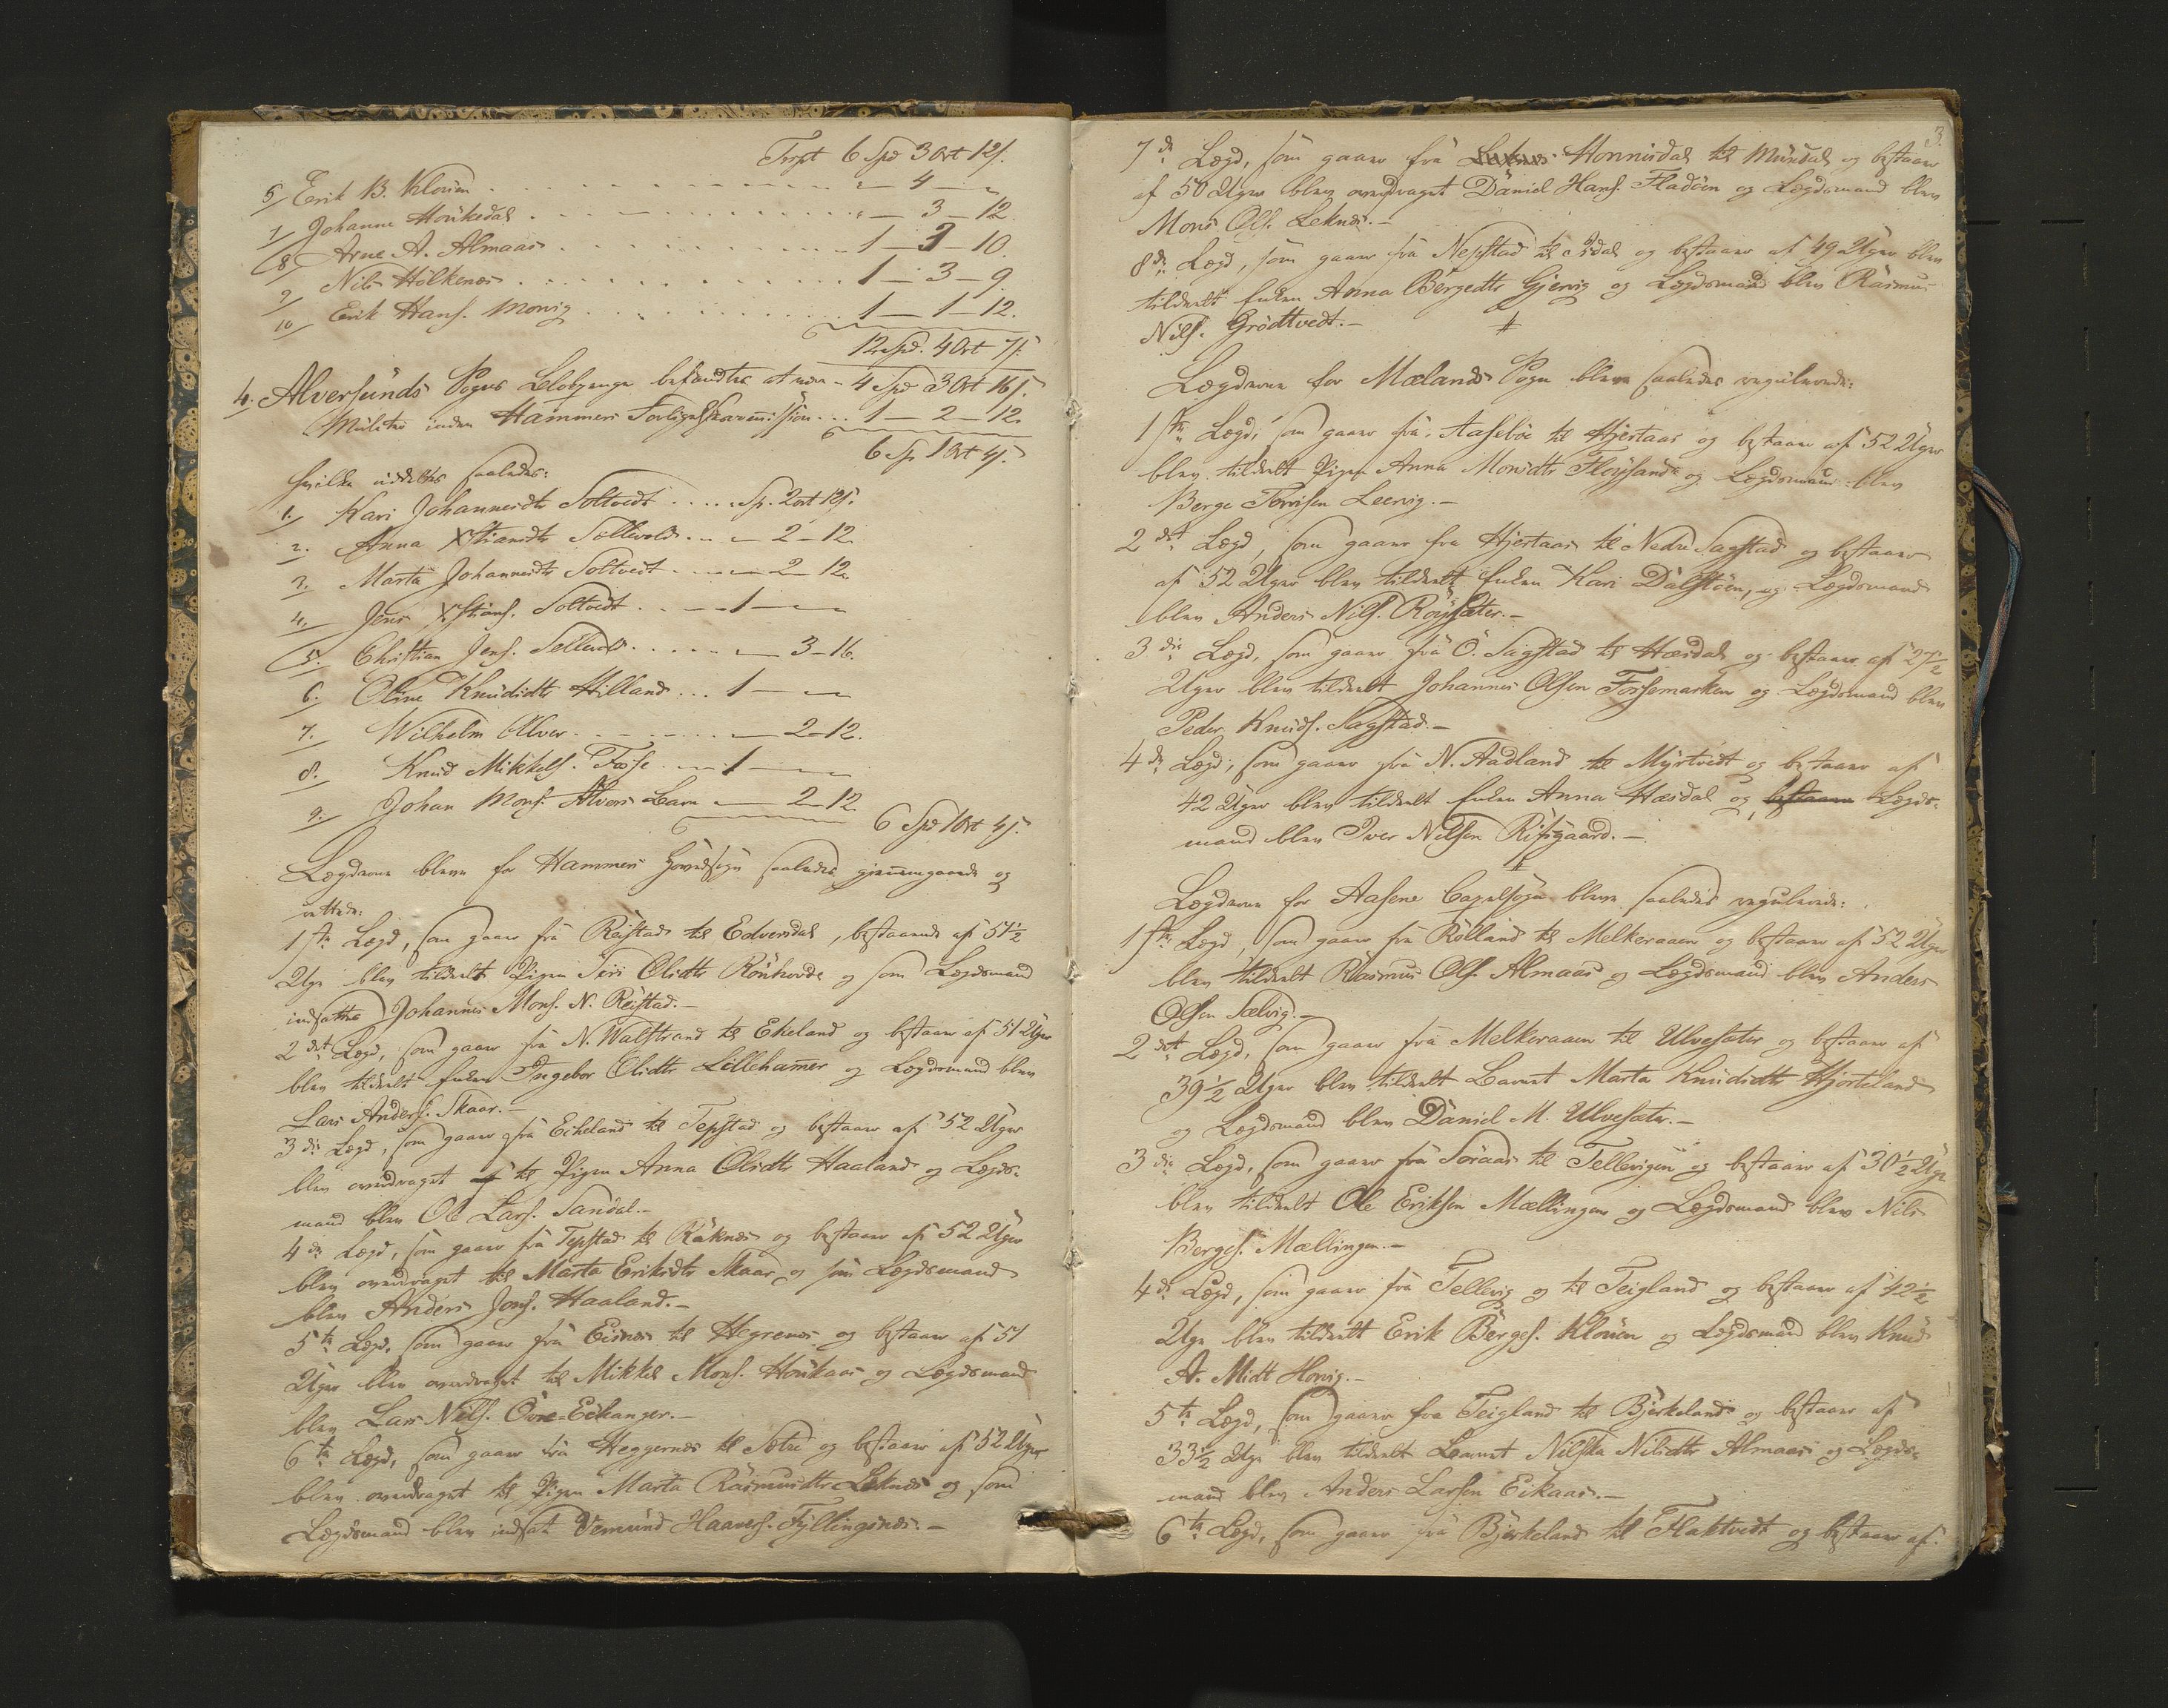 Trspt 6 Spd 3 Ort 12 s.
6/ Erik B. Kloven . . . . „ — 4 — „
7/ Johanne Houkedal . . . . „ — 3 — 12.
8/ Arne A. Almaas . . . . 1 — 3 — 10.
9/ Nils Hölkenes . . . . 1 — 3 — 9.
10/ Erik Hans. Monvig . . . . 1 — 1 — 12.
12 Spd. 4 Ort 7 s.
4. Alversunds Sogns befandtes at være - 4 Spd 3 Ort 16 s.
Mulkter inden Hammers Forligelseskommission . . . 1 — 2 — 12.
6 Sp. 1 Ort 4 s.
hvilke uddeltes saaledes:
1. Kari Johannesdtr Soltvedt . . . . Sp. 2 ort 12 s.
2. Anna Xstiansdtr Sellevold . . — 2 - 12.
3. Marta Johannesdtr Soltvedt . . . — 2 — 12.
4. Jens Xstians. Soltvedt . . . 1 — „ — „
5. Christian Jens. Sellevold . . . . — 3 - 16.
6. Oline Knudsdtr Hilland . . . 1 — „ — „
7. Wilhelm Alver . . . . — 2 - 12.
8. Knud Mikkels. Fosse . . . 1 — „ — „
9. Johan Mons. Alvers Barn — 2 - 12.
6 Spd 1 Ort 4 s.
Lægderne bleve for Hammers Hovedsogn saaledes gjennemgaaede og
rettede:
1ste Lægd, som gaaer fra Reistad til Edversdal, bestaaende af 51½
Uge blev tildelt Pigen Siri Olsdtr Rönhovde og som Lægdsmand
indsattes Johannes Mons. N. Reistad. —
2det Lægd, som gaaer fra N. Walstrand til Ekeland og bestaaer af 51 Uger
blev tildelt Enken Ingebor Olsdtr Lillehamer og Lægdsmand blev
Lars Anders. Skaar. —
3die Lægd, som gaaer fra Eikeland til Tepstad og bestaaer af 52 Uger
blev overdraget til Pigen Anna Olsdtr Haaland og Lægds-
mand blev Ole Lars. Sandal. —
4de Lægd, som gaaer fra Tepstad til Räknes og bestaaer af 52 Uger
blev overdraget til Marta Eriksdtr Skaar og som Lægdsmand
blev Anders Jons. Haaland. —
5te Lægd, som gaaer fra Eisnes til Hegrenes og bestaaer af 51
Uger blev overdraget til Mikkel Mons. Houkaas og Lægdsmand
blev Lars Nils. Övre-Eikanger. —
6te Lægd, som gaaer fra Heggernes til Sætre og bestaaer af 52 Uger
blev overdraget til Pigen Marta Rasmusdtr Leknes og som
Lægdsmand blev indsat Vemund Haavers. Fyllingsnes. —
3.
7de Lægd, som gaaer fra Honnisdal til Mundal og bestaaer
af 50 Uger blev overdraget Daniel Hans. Fladöen og Lægdsmand blev
Mons Ols. Leknes. —
8de Lægd, som gaaer fra Nepstad til Isdal og bestaaer af 49 Uger blev
tildelt Enken Anna Bergedtr Gjervig og Lægdsmand blev Rasmus
Nils. Grödtvedt. —
Lægderne for Mælands Sogn bleve saaledes regulerede:
1ste Lægd, som gaaer fra Aasebøe til Hjertaas og bestaaer af 52 Uger
blev tildelt Pigen Anna Monsdtr Flöysand og Lægdsmand blev
Berge Torrisen Leervig. —
2det Lægd, som gaaer fra Hjertaas til Nedre Sagstad og bestaaer
af 52 Uger blev tildelt Enken Kari Dalstöen, og Lægdsmand
blev Anders Nils. Röysæter. —
3die Lægd, som gaaer fra Ö. Sagstad til Hæsdal og bestaaer af 27½
Uger blev tildelt Johannes Olsen Fossemarken og Lægdsmand blev
Peder Knuds. Sagstad. —
4de Lægd, som gaaer fra N. Aadland til Myrtvedt og bestaaer af
42 Uger blev tildelt Enken Anna Hæsdal og bestaaer Lægds-
mand blev Iver Nilsen Risgaard. —
Lægderne for Aasene Capelsogn bleve saaledes regulerede:
1ste Lægd, som gaaer fra Rolland til Melkeraaen og bestaaer af 52 Uger
blev tildelt Rasmus Ols. Almaas og Lægdsmand blev Anders
Olsen Sælvig. —
2det Lægd, som gaaer fra Melkeraaen til Ulvesæter og bestaaer af
39½ Uger blev tildelt Barnet Marta Knudsdtr Hjorteland
og Lægdsmand blev Daniel M. Ulvesæter. —
3die Lægd, som gaaer fra Soraas til Tellevigen og bestaaer af 30½ Uge
blev tildelt Ole Eriksen Mællingen og Lægdsmand blev Nils
Berges. Mællingen. —
4de Lægd, som gaaer fra Tellevig og til Teigland og bestaaer af 42½
Uge blev tildelt Erik Berges. Kloven og Lægdsmand blev Knud
A. Midt Horvig. —
5te Lægd, som gaaer fra Teigland til Bjerkeland og bestaaer af
33½ Uge blev tildelt Barnet Nilsta Nilsdtr Almaas og Lægds-
mand blev Anders Larsen Eikaas. —
6te Lægd, som gaaer fra Bjerkeland til Flaktvedt og bestaaer af